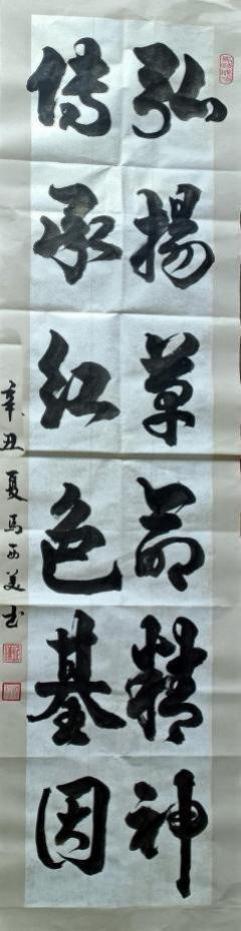 弘揚革命精神
傳承紅色基因
辛丑夏马西美书